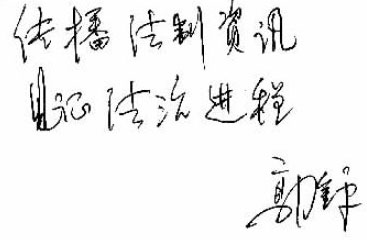 传播法制资讯
见证法治进程
郭锋